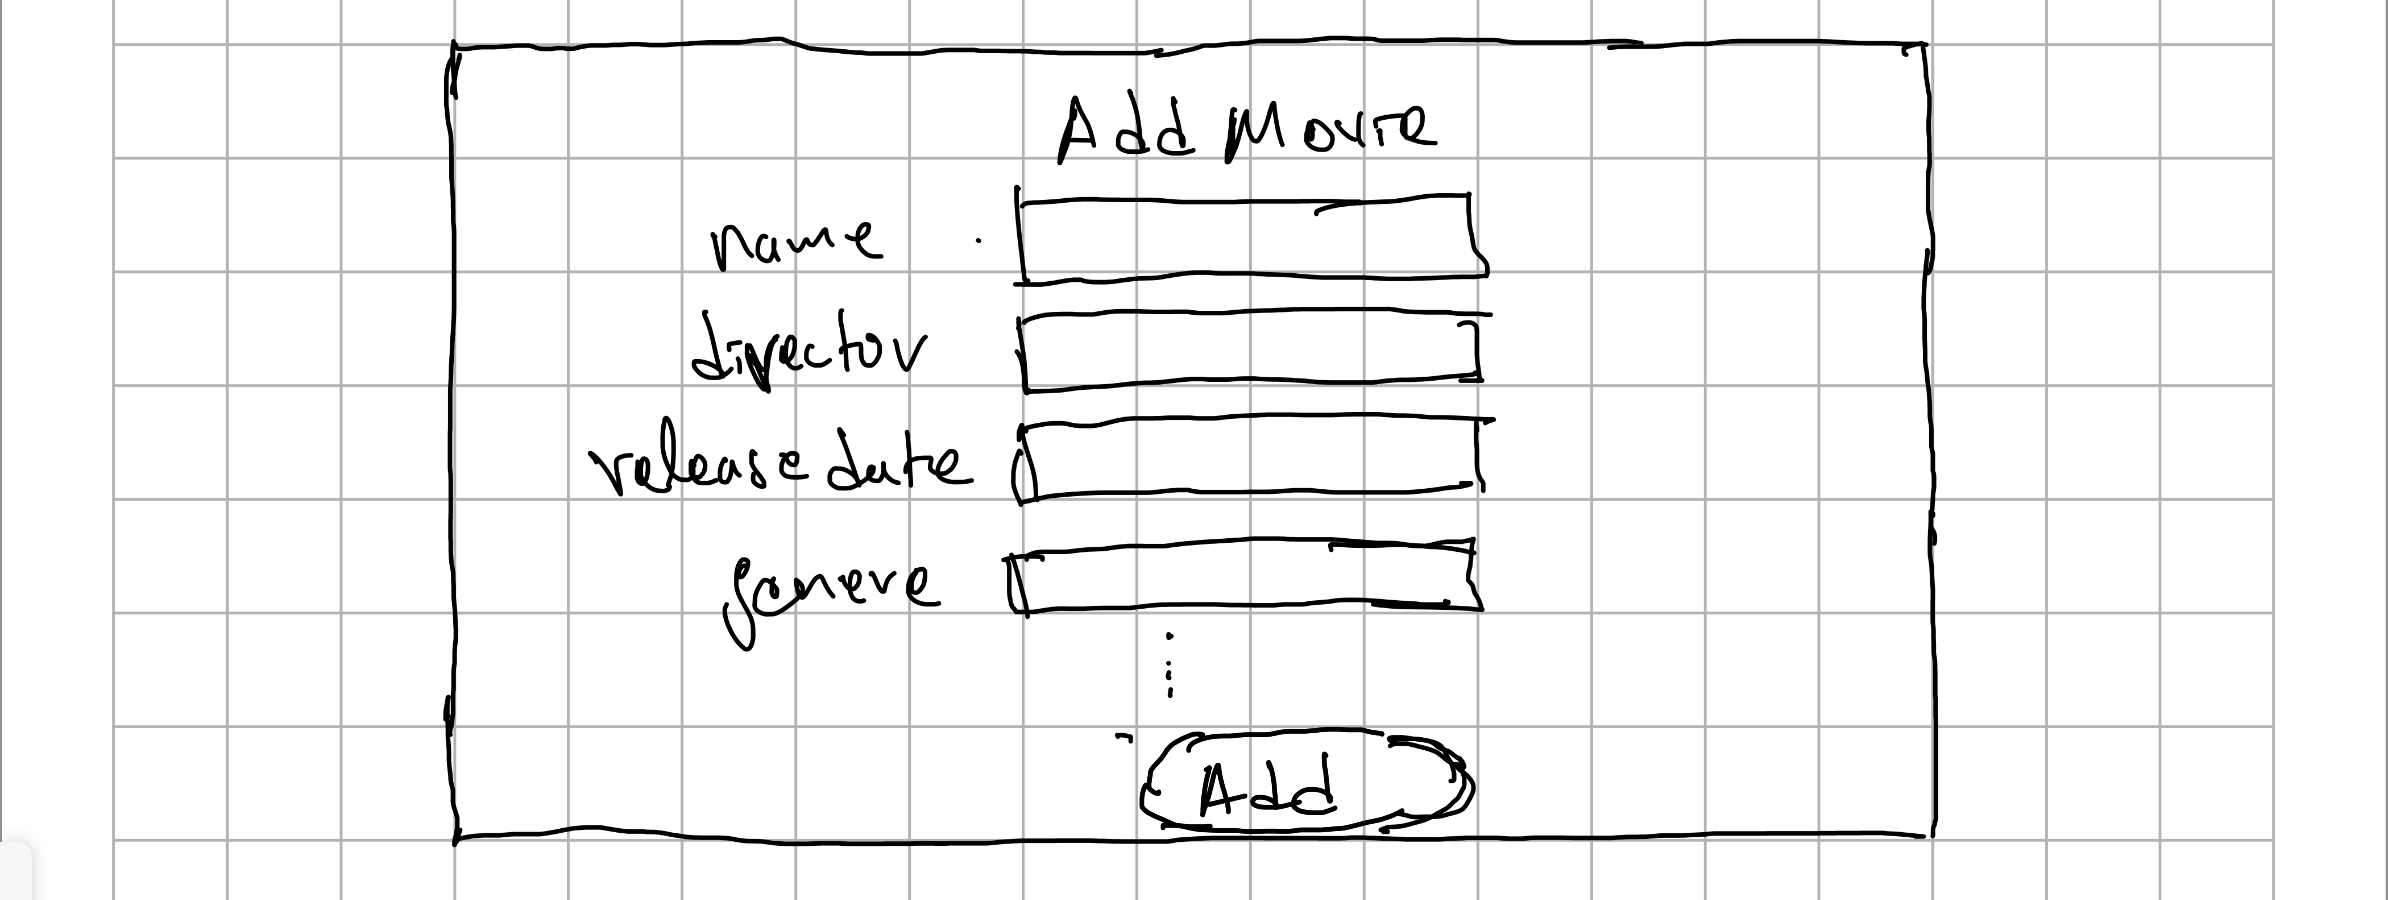 Add Movie
name
director
release date
genere
Add